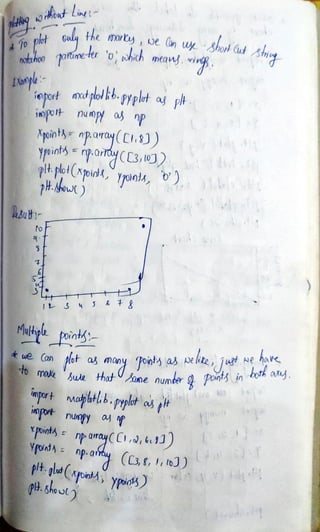 Plotting without Line:-
* To plot only the markes, we can use shortcut string
notation parameter 'o', which means rings.
Example:-
import matplotlib.pyplot as plt
import numpy as np
xpoints = np.array([1,8])
ypoints = np.array([3,10])
plt.plot(xpoints, ypoints, 'o')
plt.show()
Result:-
10
9
8
7
6
5
4
3
1 2 3 4 5 6 7 8
Multiple points:-
* we can plot as many points as we like, just we have
to make sure that same number of points in both axis.
import matplotlib.pyplot as plt
import numpy as np
xpoints = np.array([1,2,6,8])
ypoints = np.array([3,8,1,10])
plt.plot(xpoints, ypoints)
plt.show()